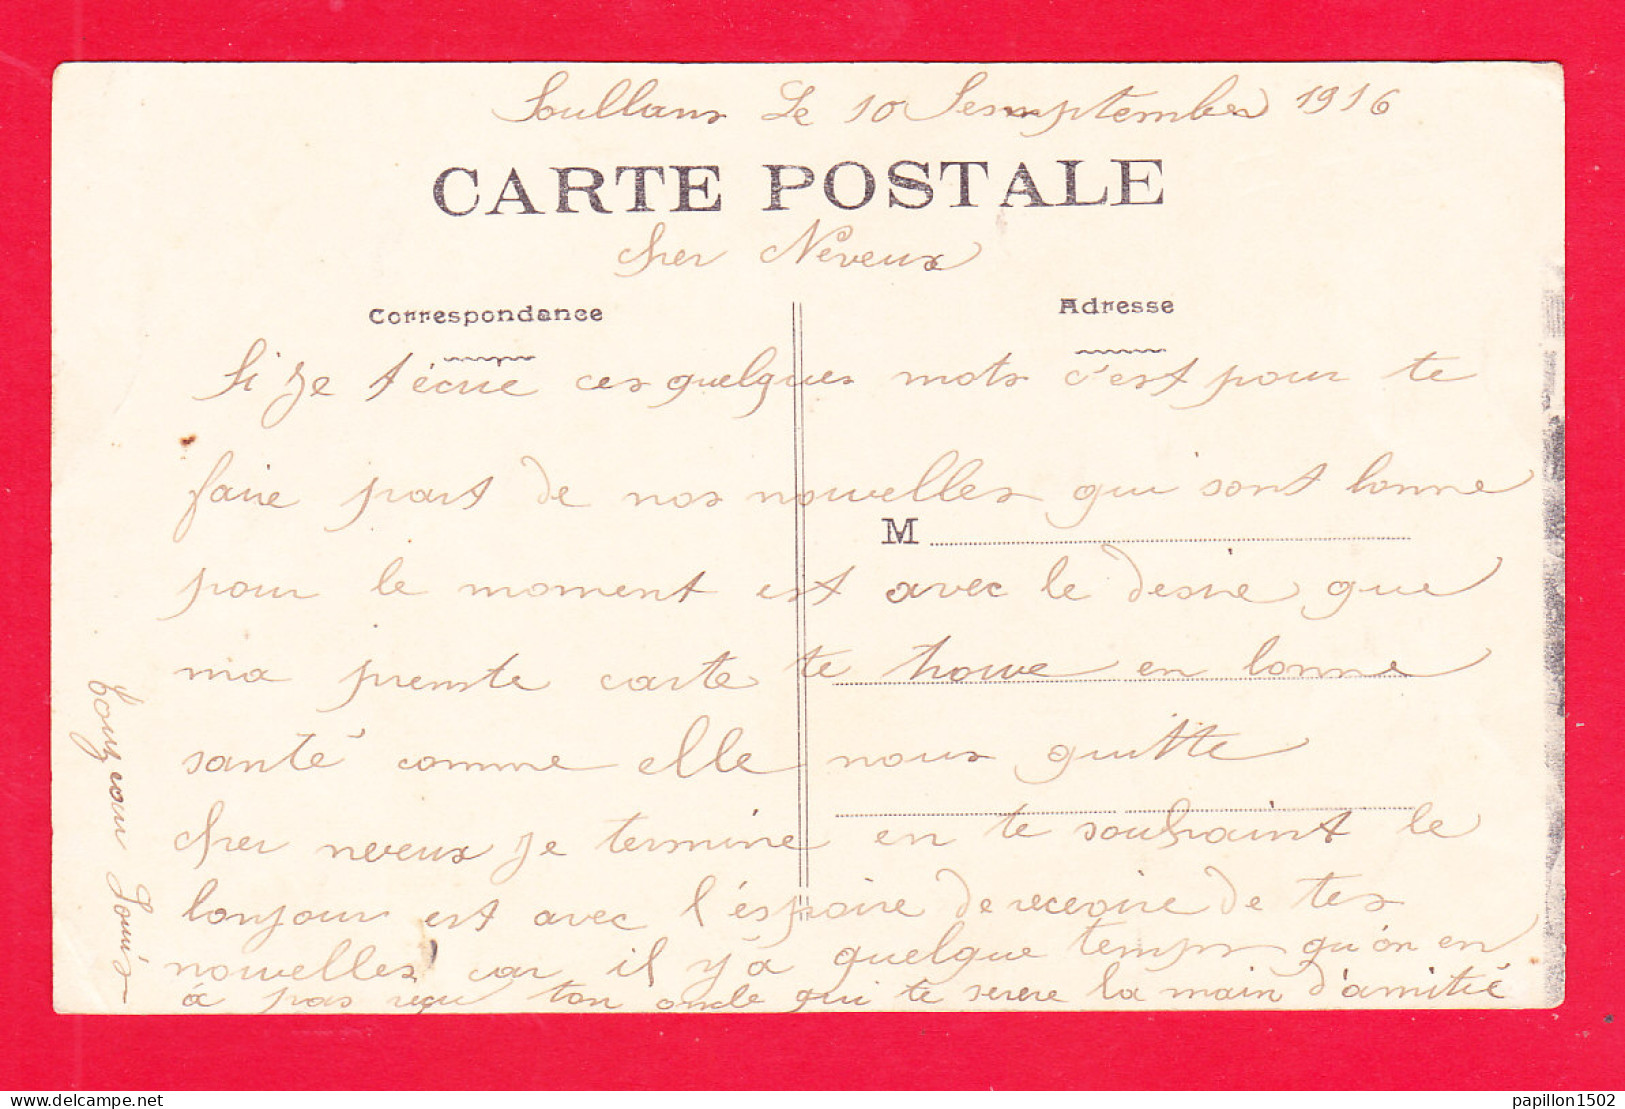 Soullans Le 10 Semptembre 1916
CARTE POSTALE
cher Neveux
Correspondance
Adresse
Si je t'écrie ces quelques mots c'est pour te
faire part de nos nouvelles qui sont bonne
M
pour le moment est avec le desire que
ma presente carte te trouve en bonne
santé comme elle nous quitte
cher neveux je termine en te souhaint le
bonjour est avec l'éspoire de recevoire de tes
nouvelles car il y'a quelque temps qu'on en
à pas reçu ton oncle qui te serere la main d'amitié
Louis
papillon1502